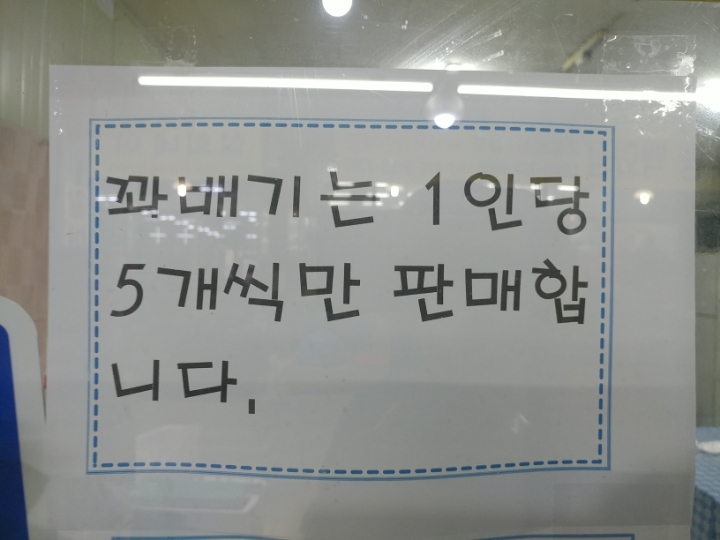 꽈배기는 1인당
5개씩만 판매합
니다.